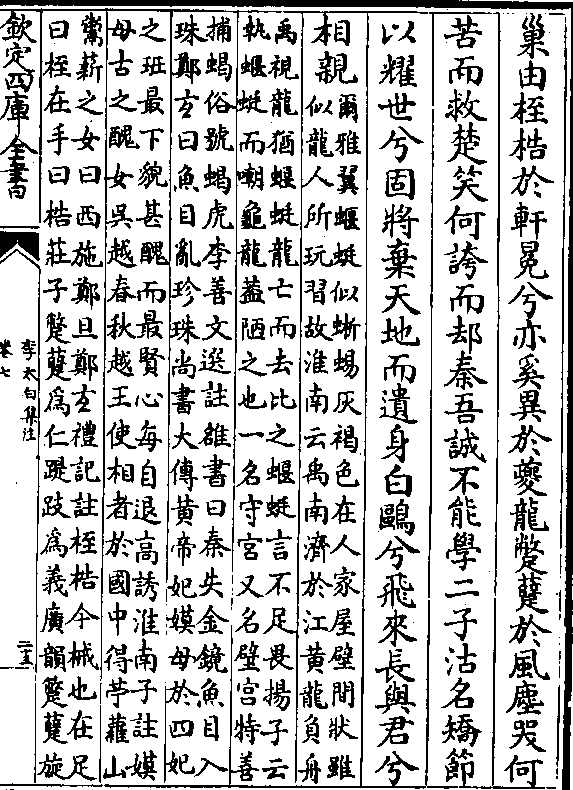 巢由桎梏於軒冕兮亦奚異於夔龍蹩躠於風塵哭何
苦而救楚笑何誇而却秦吾誠不能學二子沽名矯節
以耀世兮固將棄天地而遺身白鷗兮飛來長與君兮
相親
爾雅翼蝘蜓似蜥蜴灰褐色在人家屋壁間狀雖
似龍人所玩習故淮南云禹南濟於江黃龍負舟
禹視龍猶蝘蜓龍亡而去比之蝘蜓言不足畏揚子云
執蝘蜓而嘲龜龍蓋陋之也一名守宮又名壁宮特善
捕蝎俗號蝎虎李善文選註雒書曰秦失金鏡魚目入
珠鄭玄曰魚目亂珍珠尚書大傳黃帝妃嫫母於四妃
之班最下貌甚醜而最賢心每自退高誘淮南子註嫫
母古之醜女吳越春秋越王使相者於國中得苧蘿山
鬻薪之女曰西施鄭旦鄭玄禮記註桎梏今械也在足
曰桎在手曰梏莊子蹩躠為仁踶跂為義廣韻蹩躠旋
欽定四庫全書
李太白集注
卷七
二五